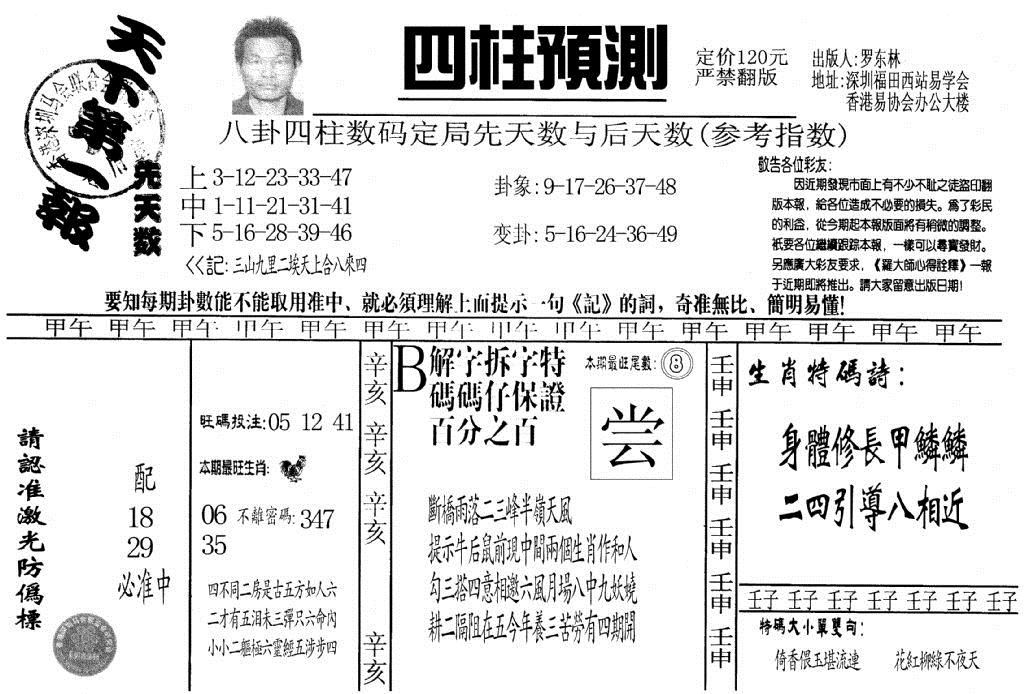 天下第一報
四柱預測
定价120元
严禁翻版
出版人:罗东林
地址:深圳福田西站易学会
香港易协会办公大楼
八卦四柱数码定局先天数与后天数(参考指数)
先天数
上 3-12-23-33-47
中 1-11-21-31-41
下 5-16-28-39-46
<<記:三山九里二埃天上合八來四
卦象:9-17-26-37-48
变卦:5-16-24-36-49
敬告各位彩友:
因近期發現市面上有不少不耻之徒盜印翻
版本報,給各位造成不必要的損失。爲了彩民
的利益,從今期起本報版面將有稍微的調整。
衹要各位繼續跟踪本報,一樣可以尋寶發財。
另應廣大彩友要求,《羅大師心得詮釋》一報
于近期即將推出。請大家留意出版日期!
要知每期卦數能不能取用准中、就必須理解上面提示一句《記》的詞,奇准無比、簡明易懂!
甲午 甲午 甲午 甲午 甲午 甲午 甲午 甲午 甲午 甲午 甲午 甲午 甲午 甲午 甲午
請認准激光防僞標
配
18
29
必准中
旺碼投注:05 12 41
本期最旺生肖:
06 不離密碼:347
35
四不同二房是古五方如人六
二才有五泪未三彈只六命內
小小二軀極六靈經五涉步四
辛亥 辛亥 辛亥 辛亥
B 解字拆字特
碼碼仔保證
百分之百
本期最旺尾數:8
尝
斷橋雨落二三峰半嶺天風
提示牛后鼠前現中間兩個生肖作和人
勾三搭四意相邀六風月場八中九妖嬈
耕二隔阻在五今年養三苦勞有四期開
壬申 壬申 壬申 壬申 壬申 壬申
生肖特碼詩:
身體修長甲鱗鱗
二四引導八相近
壬子 壬子 壬子 壬子 壬子 壬子 壬子
特碼大小單雙句:
倚香偎玉堪流連 花紅柳綠不夜天